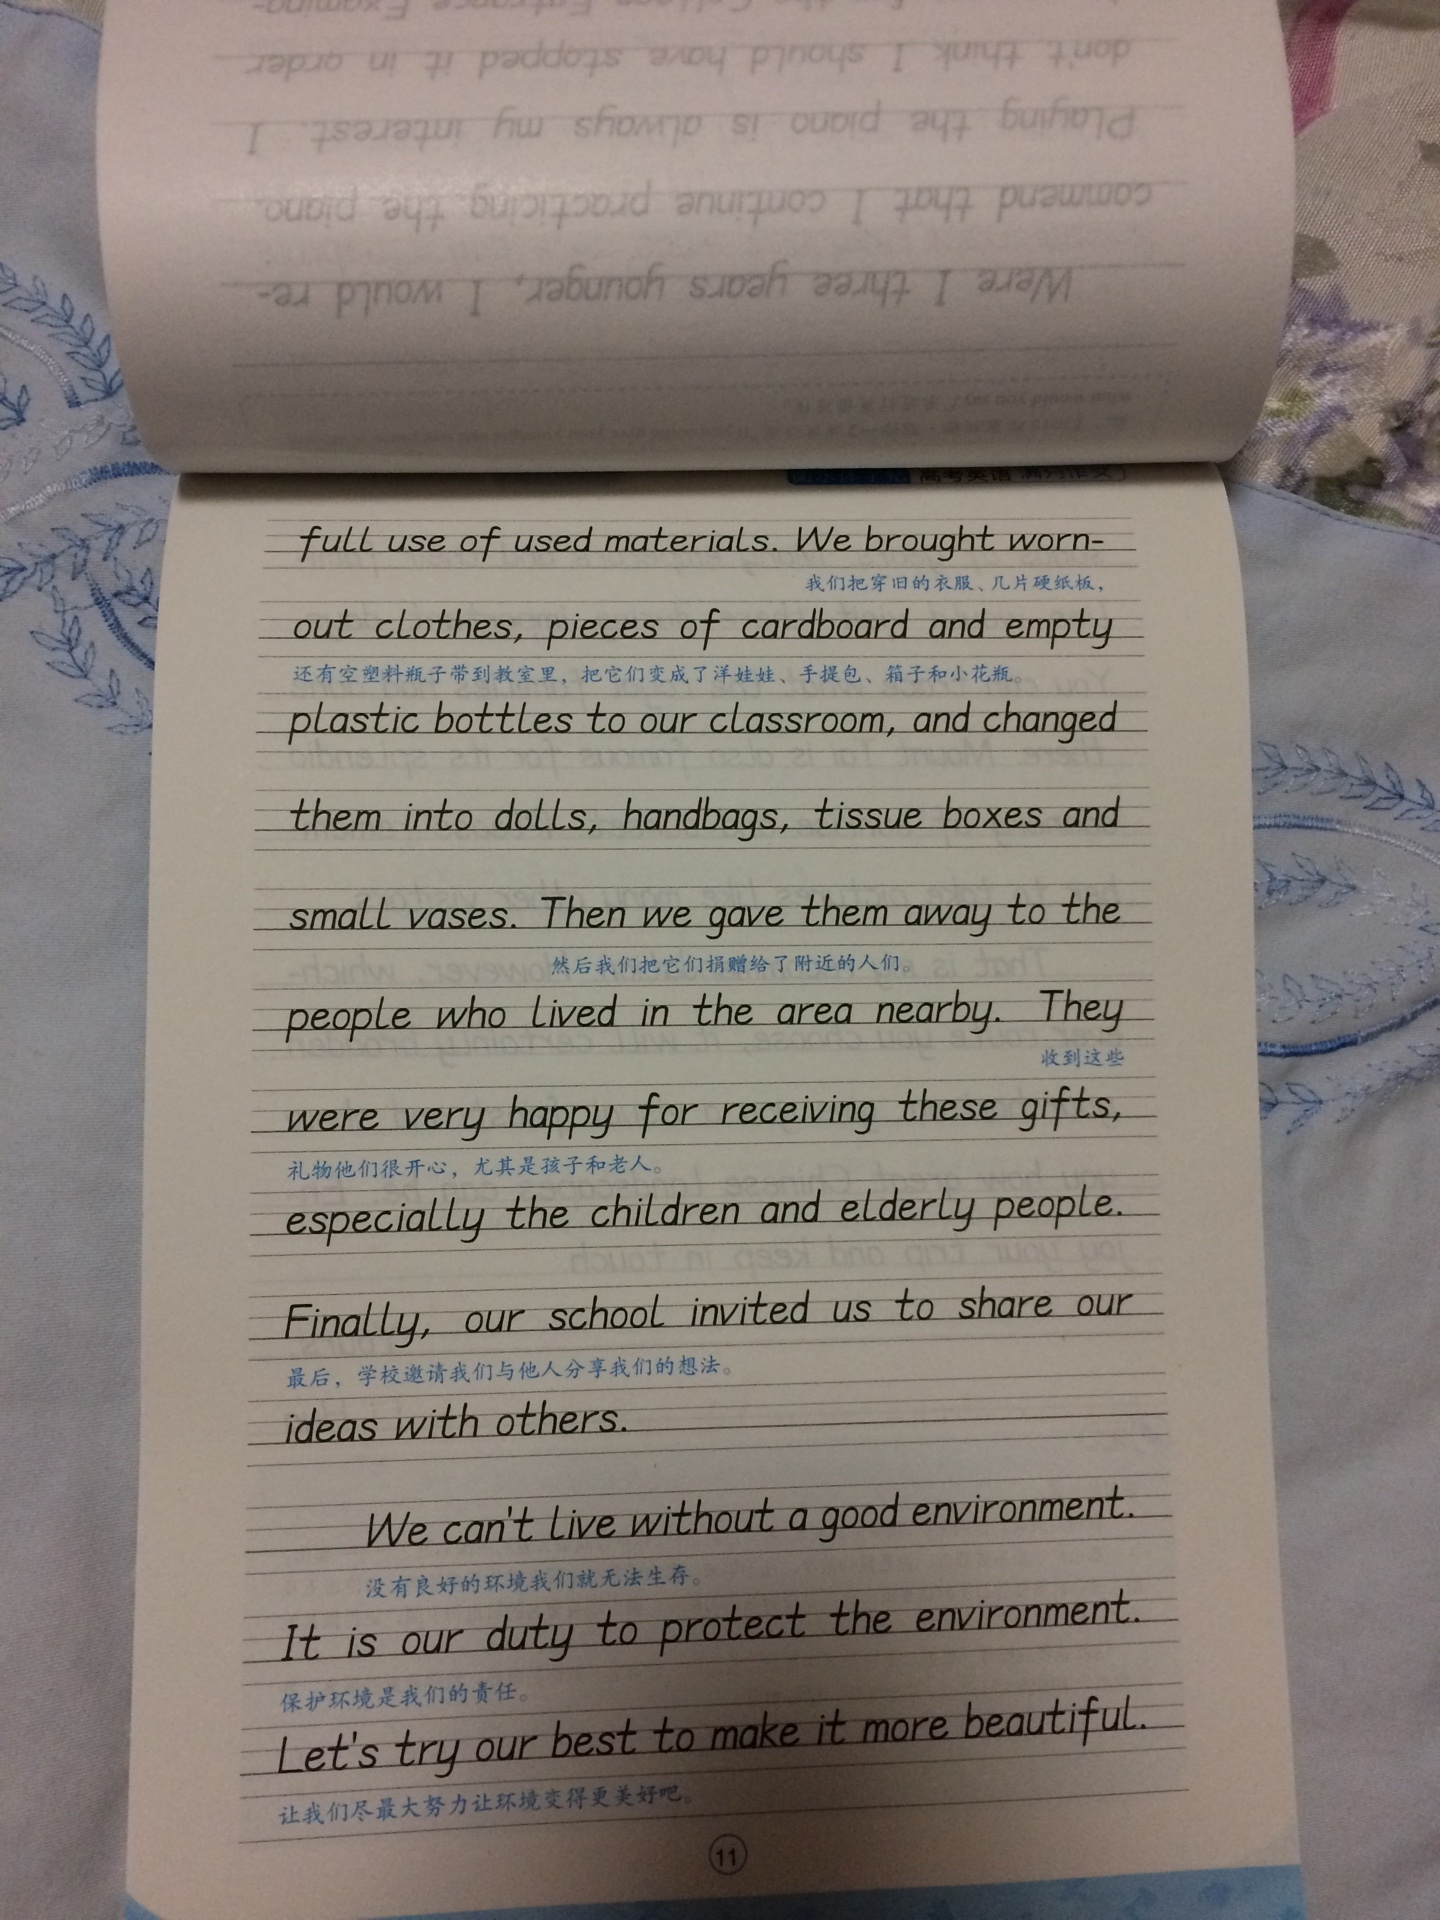 don't think I should have stopped it in order
Playing the piano is always my interest. I
commend that I continue practicing the piano.
Were I three years younger, I would re-
高考英语 满分作文
full use of used materials. We brought worn-
我们把穿旧的衣服、几片硬纸板，
out clothes, pieces of cardboard and empty
还有空塑料瓶子带到教室里，把它们变成了洋娃娃、手提包、箱子和小花瓶。
plastic bottles to our classroom, and changed
them into dolls, handbags, tissue boxes and
small vases. Then we gave them away to the
然后我们把它们捐赠给了附近的人们。
people who lived in the area nearby. They
收到这些
were very happy for receiving these gifts,
礼物他们很开心，尤其是孩子和老人。
especially the children and elderly people.
Finally, our school invited us to share our
最后，学校邀请我们与他人分享我们的想法。
ideas with others.
We can't live without a good environment.
没有良好的环境我们就无法生存。
It is our duty to protect the environment.
保护环境是我们的责任。
Let's try our best to make it more beautiful.
让我们尽最大努力让环境变得更美好吧。
11